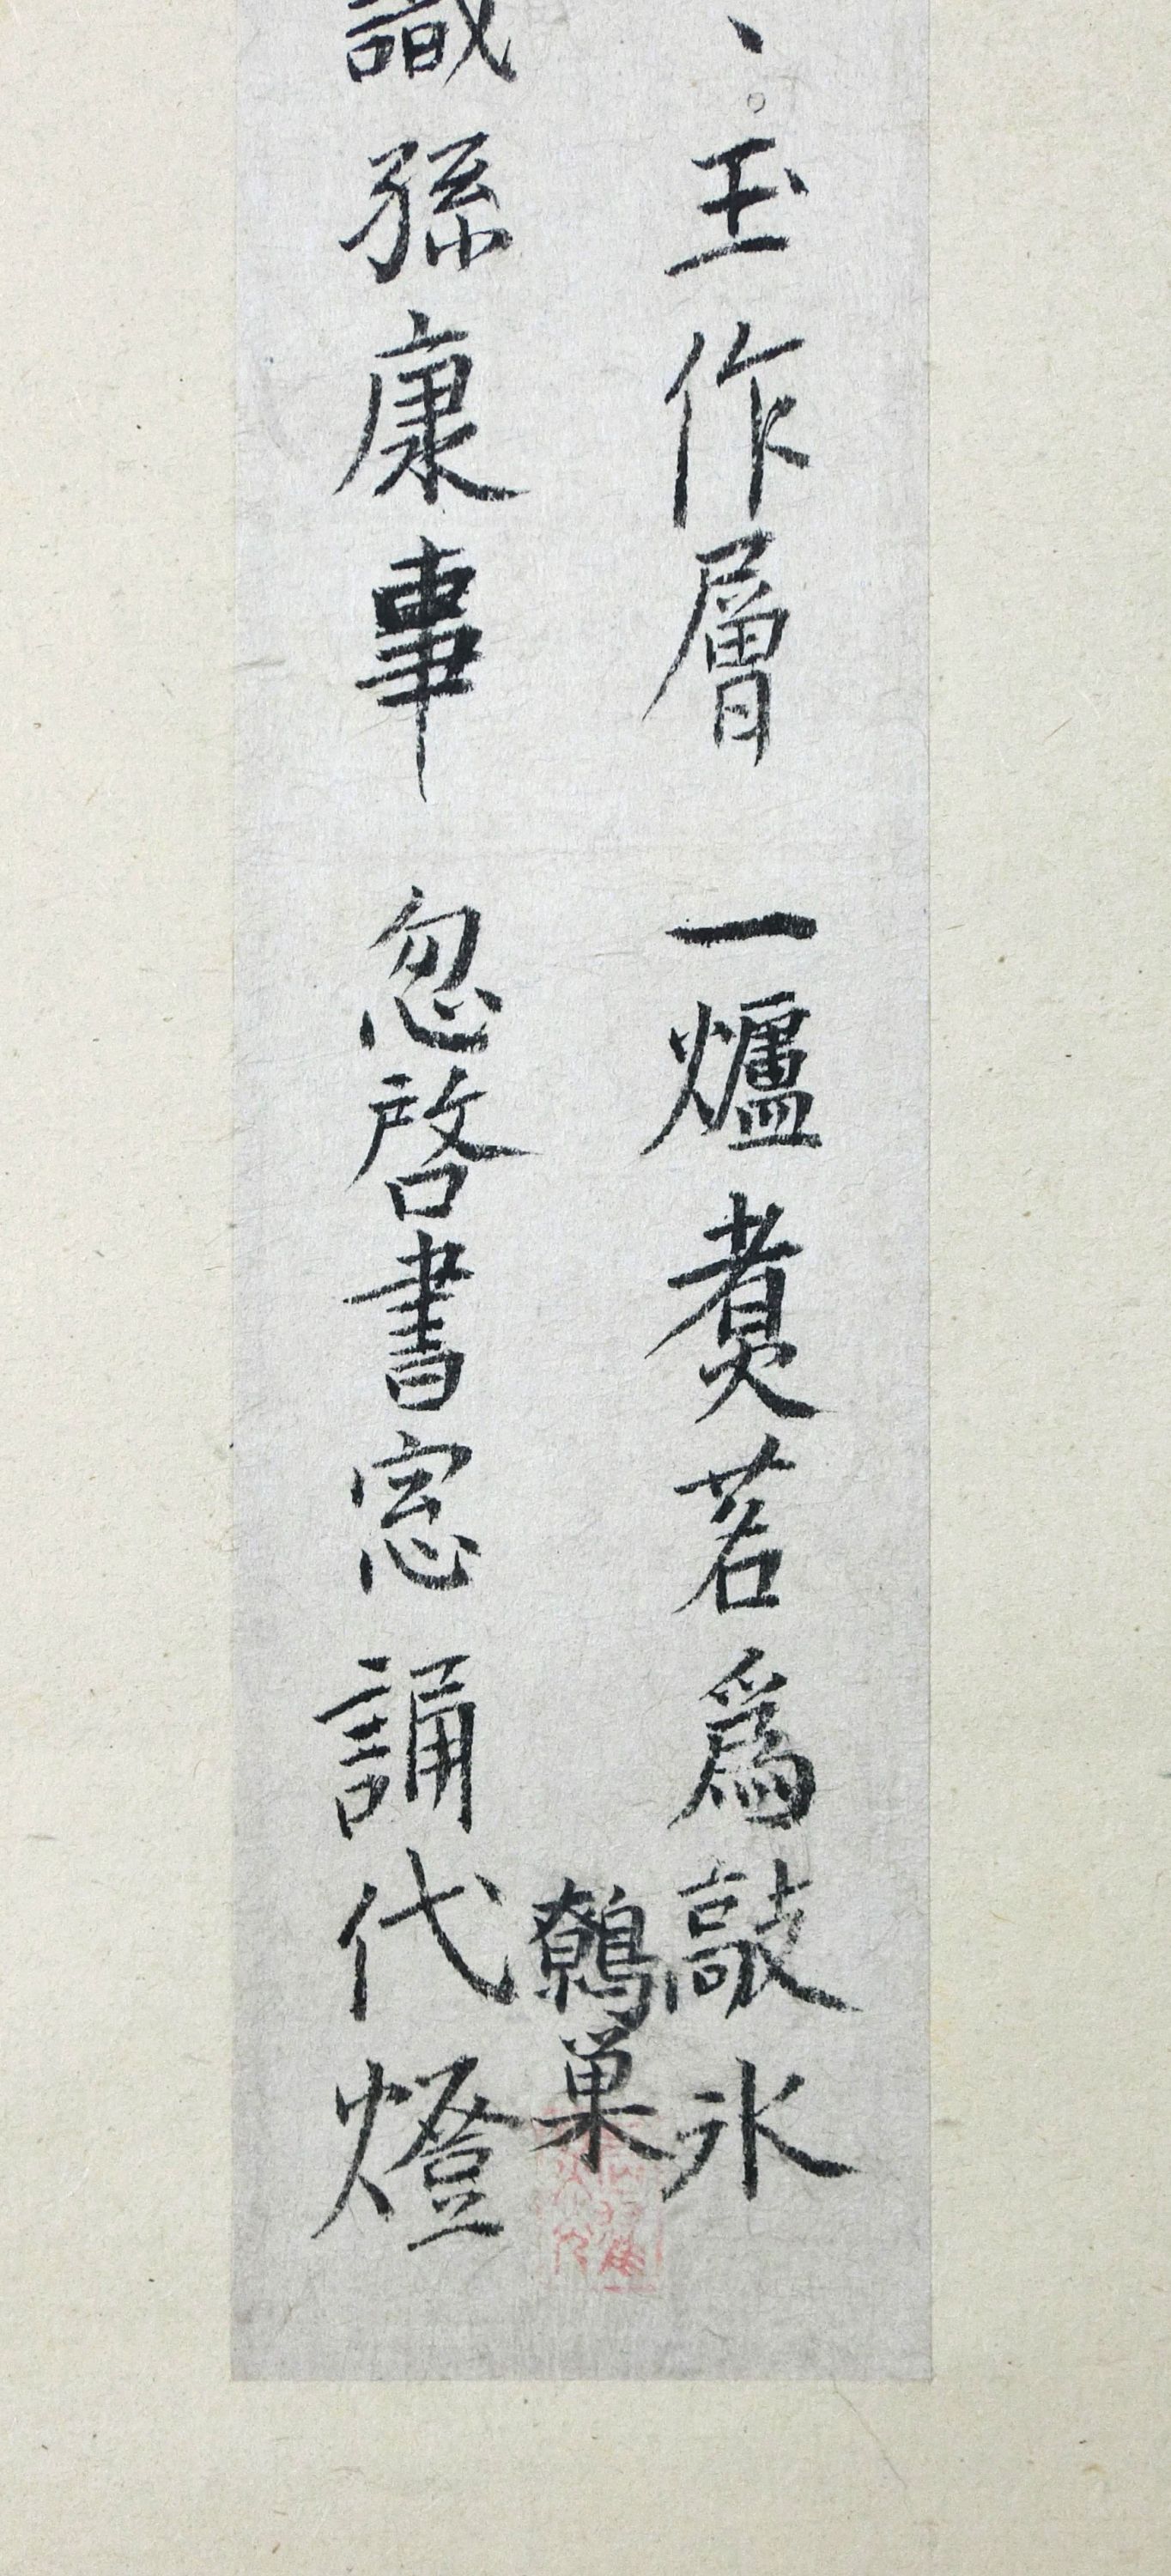 玉作層 一爐煑茗爲敲氷
識孫康事 忽啓書窓誦代燈
鷯巢